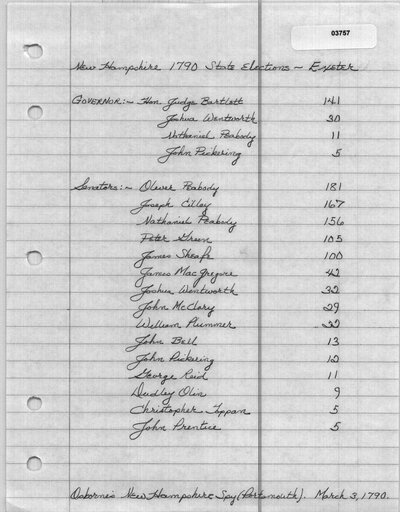 03757
New Hampshire 1790 State Elections ~ Exeter
Governor:~ Hon Judge Bartlett 141
Joshua Wentworth 30
Nathaniel Peabody 11
John Pickering 5
Senators:~ Oliver Peabody 181
Joseph Cilley 167
Nathaniel Peabody 156
Peter Green 105
James Sheafe 100
James MacGregore 42
Joshua Wentworth 32
John McClary 29
William Plummer
John Bell 13
John Pickering 12
George Reid 11
Dudley Olin 9
Christopher Toppan 5
John Prentice 5
Osborne's New Hampshire Spy (Portsmouth). March 3, 1790.